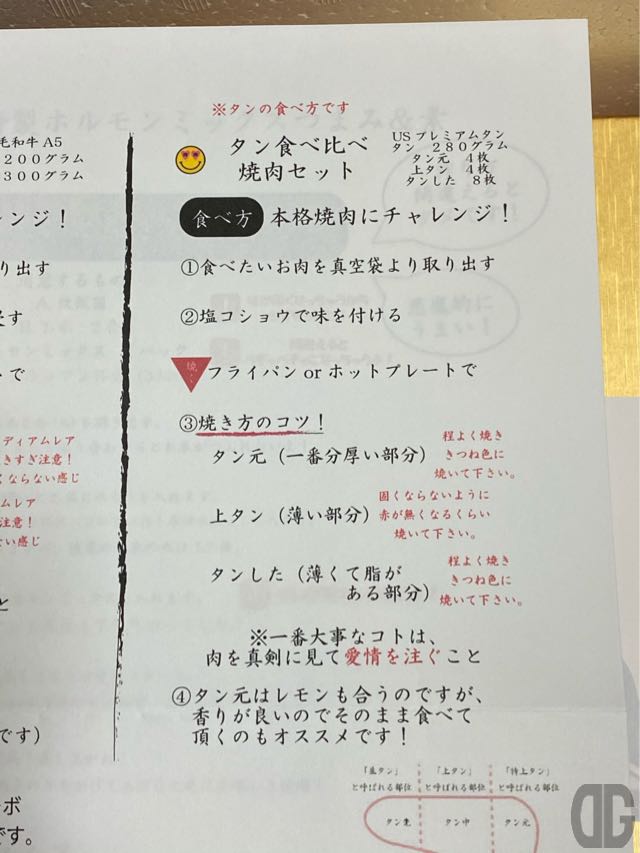 毛和牛A5
200グラム
300グラム
レンジ！
り出す
トで
ディアムレア
きすぎ注意！
くならない感じ
ムレア
注意！
ない感じ
と
です）
ボ
です。
※タンの食べ方です
タン食べ比べ
焼肉セット
USプレミアムタン
タン 280グラム
タン元 4枚
上タン 4枚
タンした 8枚
食べ方 本格焼肉にチャレンジ！
①食べたいお肉を真空袋より取り出す
②塩コショウで味を付ける
焼く フライパンorホットプレートで
③焼き方のコツ！
タン元（一番分厚い部分）
程よく焼き
きつね色に
焼いて下さい。
上タン（薄い部分）
固くならないように
赤が無くなるくらい
焼いて下さい。
タンした（薄くて脂が
ある部分）
程よく焼き
きつね色に
焼いて下さい。
※一番大事なコトは、
肉を真剣に見て愛情を注ぐこと
④タン元はレモンも合うのですが、
香りが良いのでそのまま食べて
頂くのもオススメです！
「並タン」
と呼ばれる部位
「上タン」
と呼ばれる部位
「特上タン」
と呼ばれる部位
タン先
タン中
タン元
DG